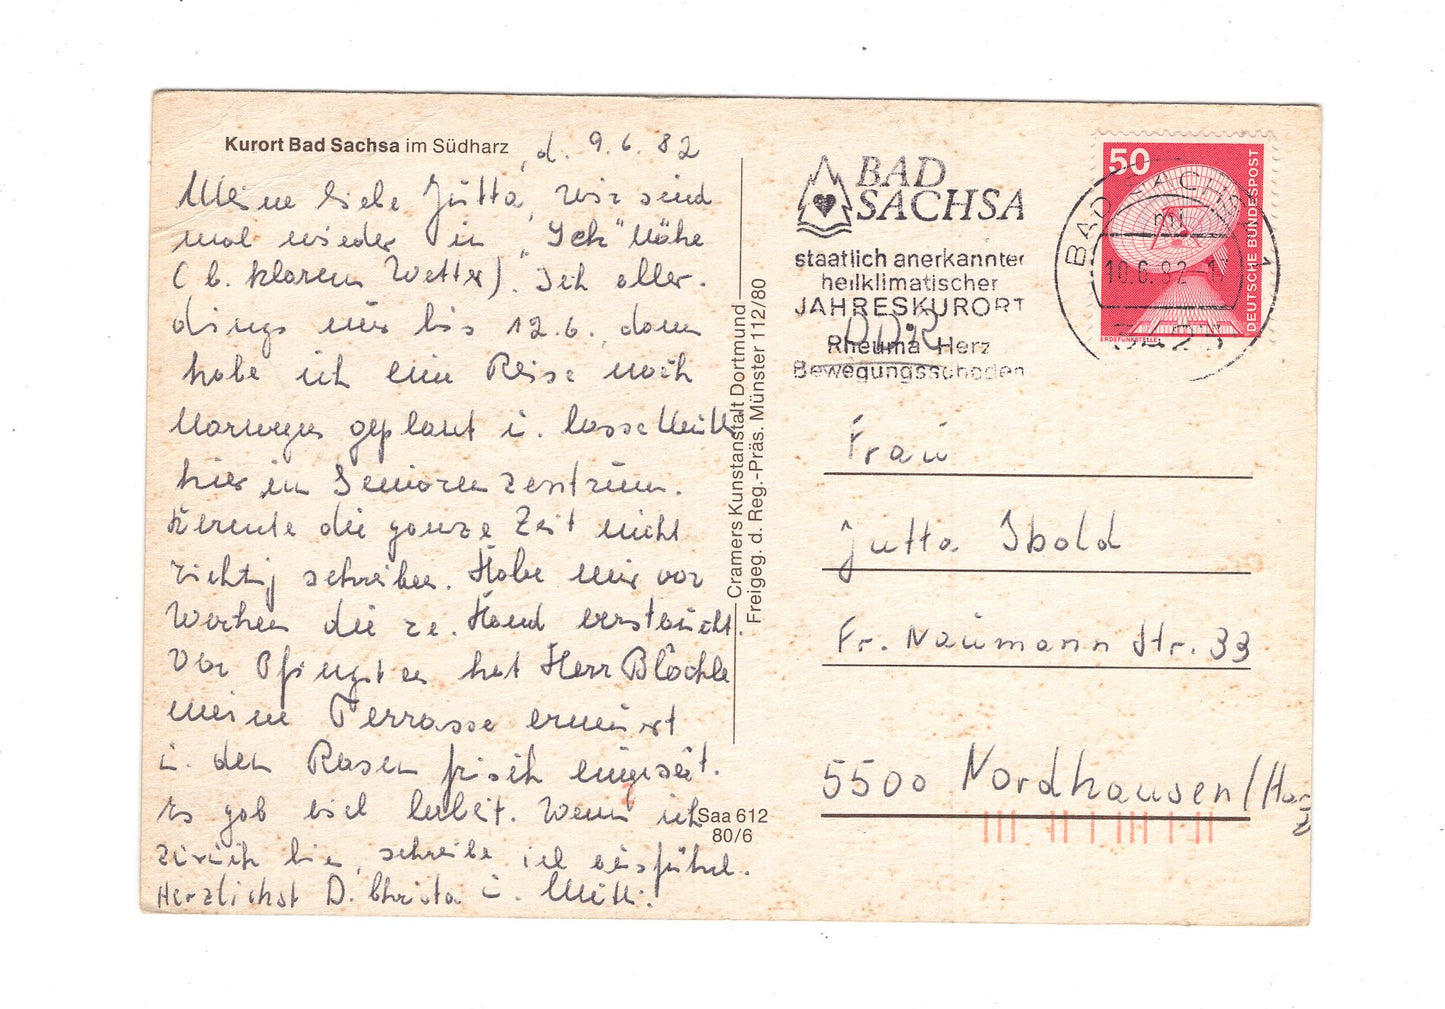 Kurort Bad Sachsa im Südharz
, d. 9.6.82
Meine liebe Jutta, wir sind
mal wieder in "Sch" Nähe
(b. klarem Wetter). Ich aller-
dings nur bis 12.6., dann
habe ich eine Reise nach
Norwegen geplant u. lasse Mutti
hier im Seniorenzentrum.
Konnte die ganze Zeit nicht
richtig schreiben. Habe mir vor
Wochen die re. Hand verstaucht.
Vor Pfingsten hat Herr Blöchle
meine Terrasse erneuert
u. den Rasen frisch eingesät.
Es gab viel Arbeit. Wenn ich
zurück bin, schreibe ich ausführl.
Herzlichst D. Christa u. Mutti.
Cramers Kunstanstalt Dortmund
Freigeg. d. Reg.-Präs. Münster 112/80
Saa 612
80/6
BAD
SACHSA
staatlich anerkannter
heilklimatischer
JAHRESKURORT
Rheuma Herz
Bewegungsschäden
DDR
50
DEUTSCHE BUNDESPOST
ERDEFUNKSTELLE
BAD SACHSA 1
mi
10.6.82-17
3423
Frau
Jutta Ibold
Fr. Naumann Str. 33
5500 Nordhausen/Harz